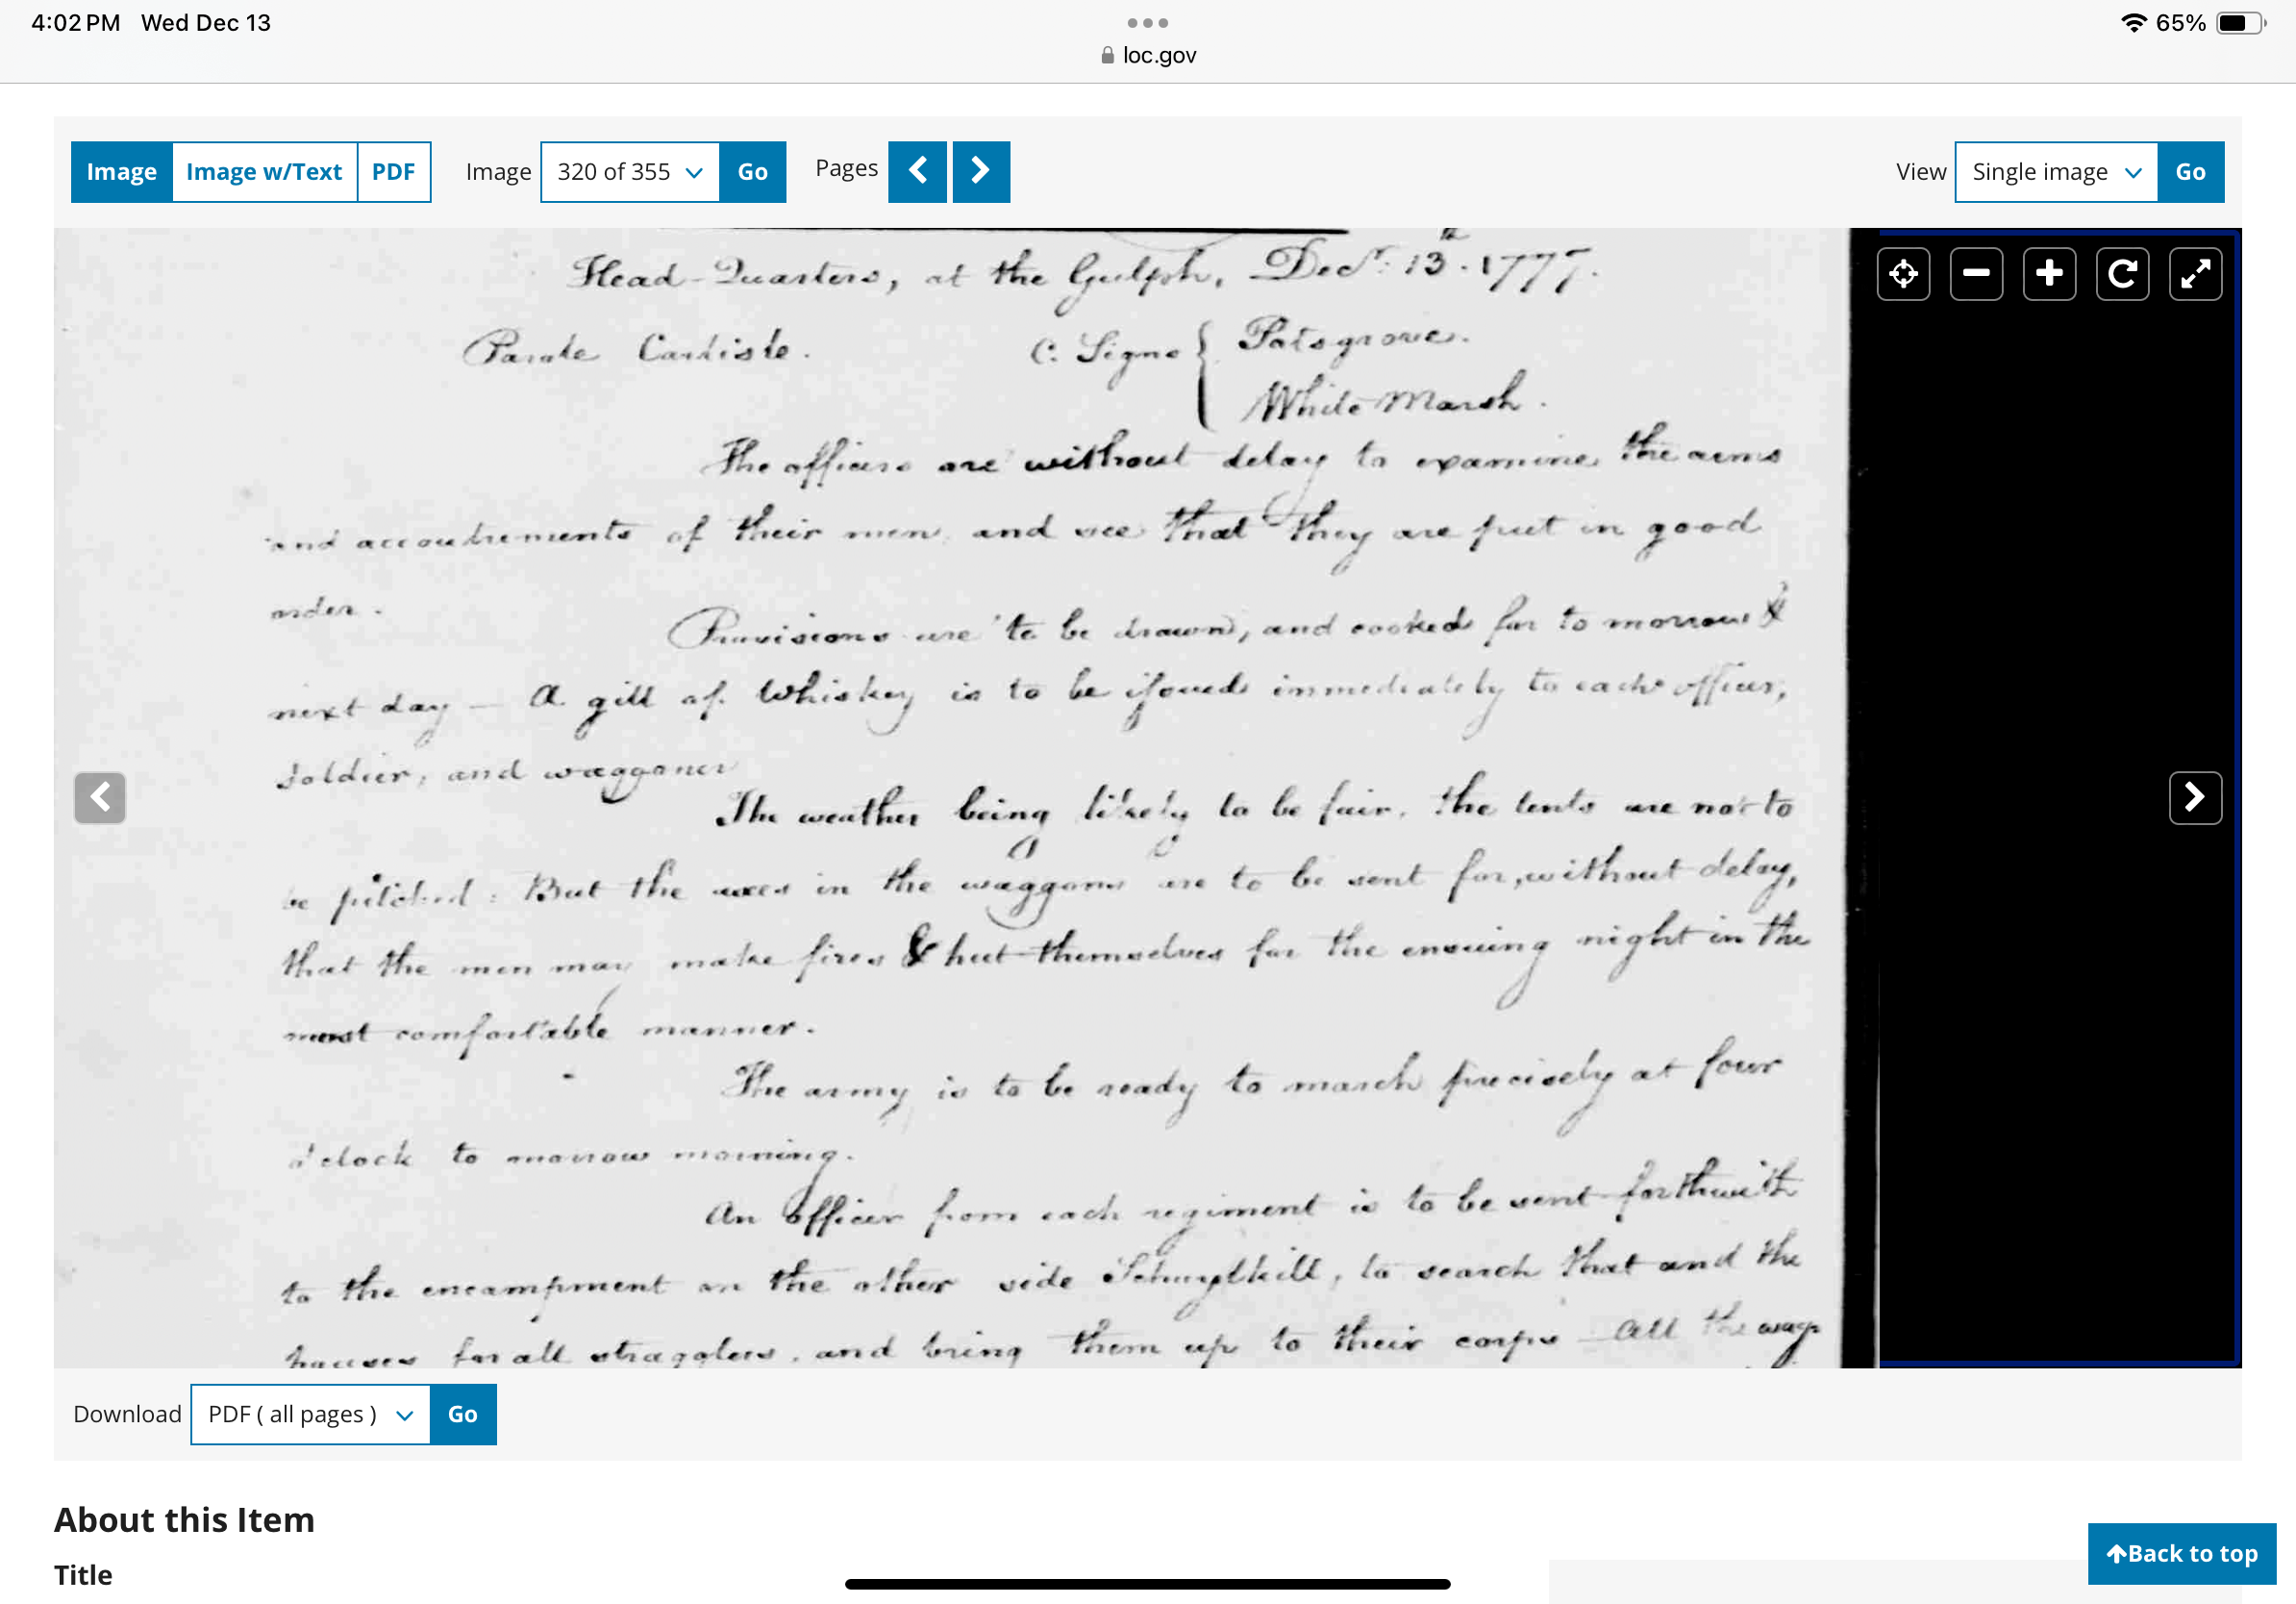 4:02 PM Wed Dec 13
65%
loc.gov
Image Image w/Text PDF Image 320 of 355 Go Pages View Single image Go
Head-Quarters, at the Gulph, Decr. 13th. 1777.
Parole Carlisle. C. Signs { Potsgrove.
White Marsh.
The officers are without delay to examine the arms
and accoutrements of their men, and see that they are put in good
order.
Provisions are to be drawn, and cooked for to morrow &
next day — A gill of Whiskey is to be issued immediately to each officer,
soldier, and waggoner
The weather being likely to be fair, the tents are not to
be pitched: But the axes in the waggons are to be sent for, without delay,
that the men may make fires & hut themselves for the ensuing night in the
most comfortable manner.
The army is to be ready to march precisely at four
o'clock to morrow morning.
An officer from each regiment is to be sent forthwith
to the encampment on the other side Schuylkill, to search that and the
houses for all stragglers, and bring them up to their corps — All the wag
Download PDF ( all pages ) Go
About this Item
Back to top
Title